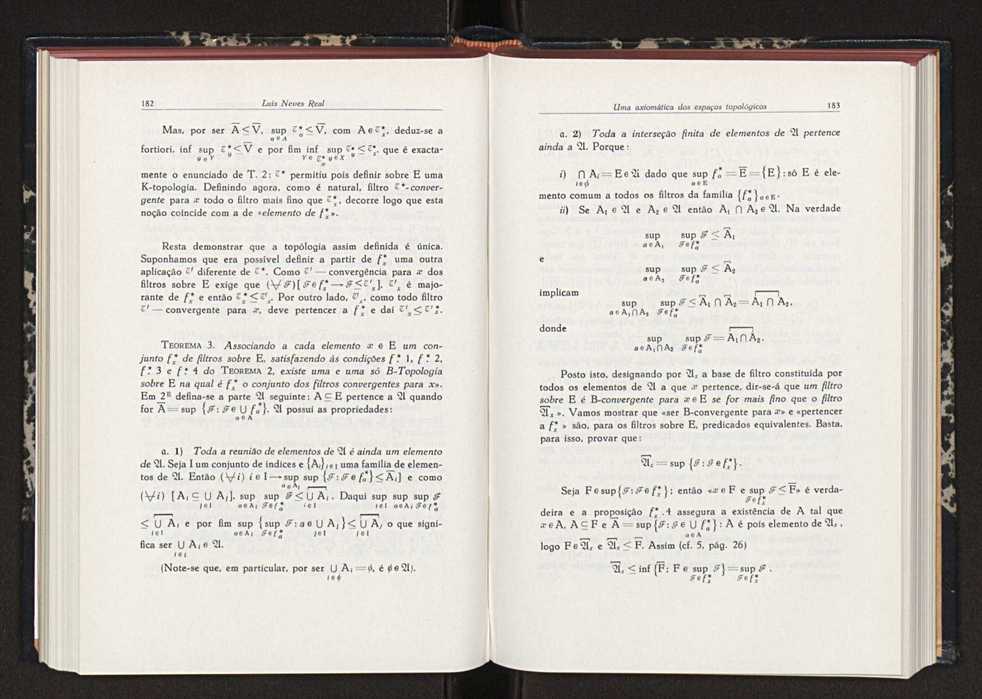 182 Luís Neves Real
Mas, por ser A̅ ≤ V̅, sup 𝒞*ₐ ≤ V̅, com A ∈ 𝒞*ₓ, deduz-se a
a∈A
fortiori, inf sup 𝒞*_y ≤ V̅ e por fim inf sup 𝒞*_y ≤ 𝒞*ₓ, que é exacta-
mente o enunciado de T. 2: 𝒞* permitiu pois definir sobre E uma
K-topologia. Definindo agora, como é natural, filtro 𝒞*-conver-
gente para x todo o filtro mais fino que 𝒞*ₓ, decorre logo que esta
noção coincide com a de «elemento de f*ₓ».
Resta demonstrar que a topólogia assim definida é única.
Suponhamos que era possível definir a partir de f*ₓ uma outra
aplicação 𝒞′ diferente de 𝒞*. Como 𝒞′ — convergência para x dos
filtros sobre E exige que (∀ℱ)[ℱ∈f*ₓ → ℱ≤𝒞′ₓ], 𝒞′ₓ é majo-
rante de f*ₓ e então 𝒞*ₓ ≤ 𝒞′ₓ. Por outro lado, 𝒞′ₓ, como todo filtro
𝒞′ — convergente para x, deve pertencer a f*ₓ e daí 𝒞′ₓ ≤ 𝒞*ₓ.
TEOREMA 3. Associando a cada elemento x ∈ E um con-
junto f*ₓ de filtros sobre E, satisfazendo às condições f*. 1, f*. 2,
f*. 3 e f*. 4 do TEOREMA 2, existe uma e uma só B-Topologia
sobre E na qual é f*ₓ o conjunto dos filtros convergentes para x».
Em 2ᴱ defina-se a parte 𝔄 seguinte: A ⊆ E pertence a 𝔄 quando
for A̅ = sup {ℱ : ℱ ∈ ∪ f*ₐ}. 𝔄 possui as propriedades:
a∈A
a. 1) Toda a reunião de elementos de 𝔄 é ainda um elemento
de 𝔄. Seja I um conjunto de índices e {Aᵢ}ᵢ∈I uma família de elemen-
tos de 𝔄. Então (∀i) i∈I → sup sup {ℱ : ℱ∈f*ₐ} ≤ A̅ᵢ] e como
a∈Aᵢ
(∀i) [Aᵢ ⊆ ∪ Aᵢ], sup sup ℱ ≤ ∪ Aᵢ. Daqui sup sup sup ℱ
i∈I a∈Aᵢ ℱ∈f*ₐ i∈I i∈I a∈Aᵢ ℱ∈f*ₐ
≤ ∪ Aᵢ e por fim sup {sup ℱ : a ∈ ∪ Aᵢ} ≤ ∪ Aᵢ o que signi-
fica ser ∪ Aᵢ ∈ 𝔄.
i∈I
(Note-se que, em particular, por ser ∪ Aᵢ = ϕ, é ϕ ∈ 𝔄).
i∈ϕ
Uma axiomática dos espaços topológicos 183
a. 2) Toda a interseção finita de elementos de 𝔄 pertence
ainda a 𝔄. Porque:
i) ∩ Aᵢ = E ∈ 𝔄 dado que sup f*ₐ = E̅ = {E} : só E é ele-
i∈ϕ a∈E
mento comum a todos os filtros da família {f*ₐ}ₐ∈E.
ii) Se A₁ ∈ 𝔄 e A₂ ∈ 𝔄 então A₁ ∩ A₂ ∈ 𝔄. Na verdade
sup sup ℱ ≤ A̅₁
a∈A₁ ℱ∈f*ₐ
e
sup sup ℱ ≤ A̅₂
a∈A₂ ℱ∈f*ₐ
implicam
sup sup ℱ ≤ A̅₁ ∩ A̅₂ = A₁ ∩ A₂,
a∈A₁∩A₂ ℱ∈f*ₐ
donde
sup sup ℱ = A₁ ∩ A₂.
a∈A₁∩A₂ ℱ∈f*ₐ
Posto isto, designando por 𝔄ₓ a base de filtro constituída por
todos os elementos de 𝔄 a que x pertence, dir-se-á que um filtro
sobre E é B-convergente para x∈E se for mais fino que o filtro
𝔄̅ₓ». Vamos mostrar que «ser B-convergente para x» e «pertencer
a f*ₓ» são, para os filtros sobre E, predicados equivalentes. Basta,
para isso, provar que:
𝔄̅ₓ = sup {ℱ : ℱ∈f*ₓ}.
Seja F∈sup{ℱ : ℱ∈f*ₓ}; então «x∈F e sup ℱ ≤ F̅» é verda-
ℱ∈f*ₓ
deira e a proposição f*ₓ.4 assegura a existência de A tal que
x∈A, A⊆F e A̅ = sup{ℱ : ℱ ∈ ∪ f*ₐ} : A é pois elemento de 𝔄ₓ,
a∈A
logo F∈𝔄̅ₓ e 𝔄̅ₓ ≤ F̅. Assim (cf. 5, pág. 26)
𝔄̅ₓ ≤ inf {F̅ : F ∈ sup ℱ} = sup ℱ.
ℱ∈f*ₓ ℱ∈f*ₓ